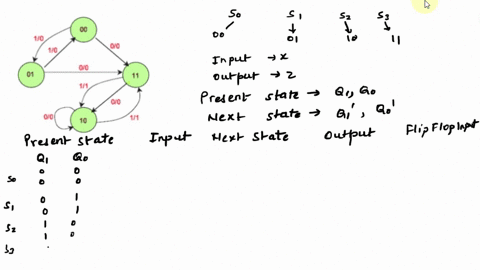 00
1/0
1/0
0/0
01
0/0
11
1/1
0/0
0/0
10
1/1
S0 S1 S2 S3
00 01 10 11
Input → x
Output → z
Present state → Q1, Q0
Next state → Q1', Q0'
Present state Input Next State Output FlipFlop Input
Q1 Q0
S0 0 0
0 0
S1 0 1
0 1
S2 1 0
1 0
S3